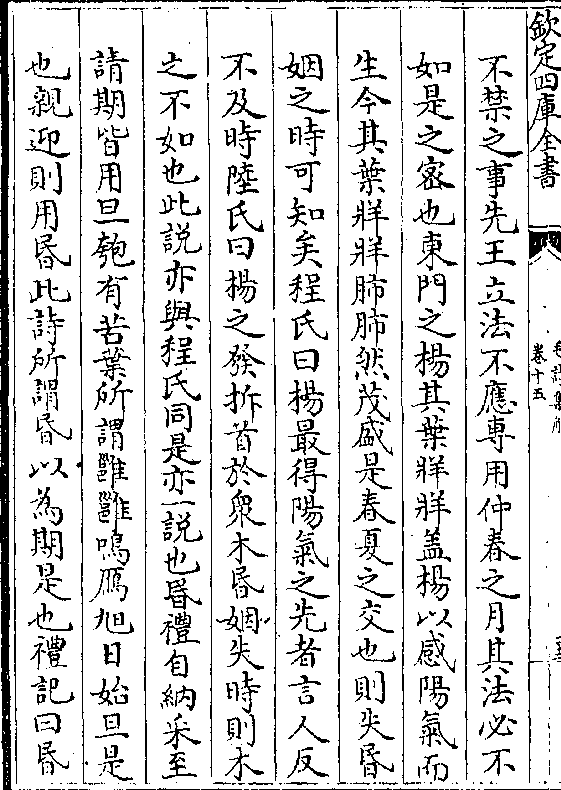 欽定四庫全書
卷十五
不禁之事先王立法不應專用仲春之月其法必不
如是之宻也東門之楊其葉牂牂盖楊以感陽氣而
生今其葉牂牂肺肺然茂盛是春夏之交也則失昏
姻之時可知矣程氏曰楊最得陽氣之先者言人反
不及時陸氏曰楊之發拆首於衆木昏姻失時則木
之不如也此説亦與程氏同是亦一説也昏禮自納采至
請期皆用旦匏有苦葉所謂雝雝鳴鴈旭日始旦是
也親迎則用昏此詩所謂昏以為期是也禮記曰昏